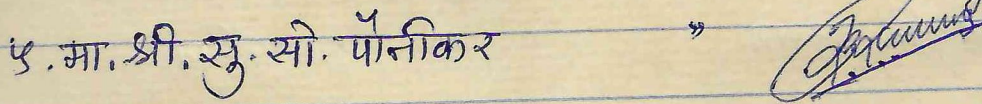 ५. मा. श्री. सु. सो. पौनीकर "